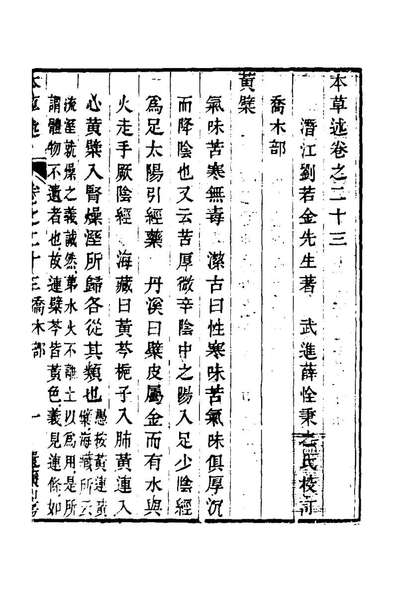 本草述卷之二十三
潛江劉若金先生著　武進薛恮秉之氏校訂
喬木部
黄檗
氣味苦寒無毒　潔古曰性寒味苦氣味俱厚沉
而降陰也又云苦厚微辛陰中之陽入足少陰經
爲足太陽引經藥　丹溪曰檗皮屬金而有水與
火走手厥陰經　海藏曰黄芩梔子入肺黄連入
心黄檗入腎燥溼所歸各從其類也愚按黄連黄
檗海藏所云
流溼就燥之義誠然第水火不離土以爲用是所
謂體物不遺者也故連檗芩皆黄色義見連條如
本草述
卷之二十三喬木部
一